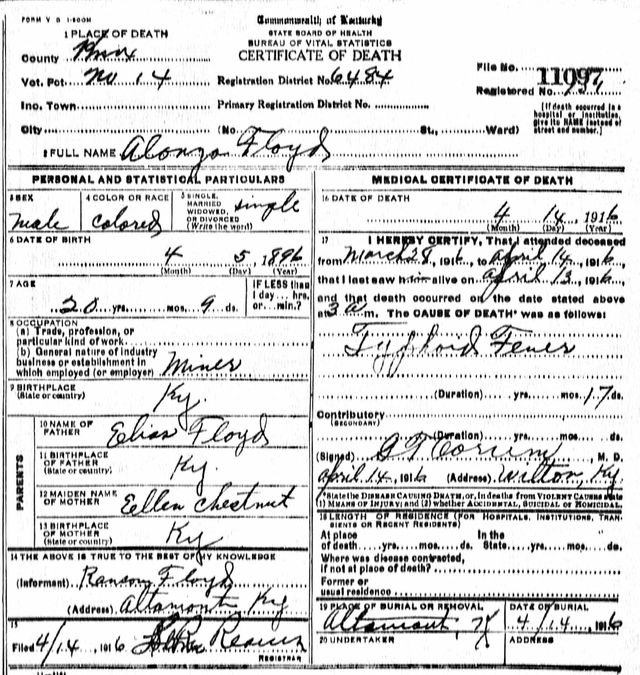 FORM V S 1-500M
Commonwealth of Kentucky
STATE BOARD OF HEALTH
BUREAU OF VITAL STATISTICS
CERTIFICATE OF DEATH
1 PLACE OF DEATH
County Knox
Vot. Pct. No 14
Inc. Town
City (No. St., Ward)
Registration District No. 6484
Primary Registration District No.
File No. 11097
Registered No. 137
[If death occurred in a hospital or institution, give its NAME instead of street and number.]
2 FULL NAME Alonzo Floyd
PERSONAL AND STATISTICAL PARTICULARS
3 SEX male
4 COLOR OR RACE colored
5 SINGLE, MARRIED WIDOWED, OR DIVORCED (Write the word) single
6 DATE OF BIRTH 4 5, 1896
(Month) (Day) (Year)
7 AGE 20 yrs. mos. 9 ds.
IF LESS than 1 day... hrs. or... min.?
8 OCCUPATION
(a) Trade, profession, or particular kind of work
(b) General nature of industry business or establishment in which employed (or employer) Miner
9 BIRTHPLACE (State or country) Ky.
PARENTS
10 NAME OF FATHER Elias Floyd
11 BIRTHPLACE OF FATHER (State or country) Ky.
12 MAIDEN NAME OF MOTHER Ellen Chestnut
13 BIRTHPLACE OF MOTHER (State or country) Ky
14 THE ABOVE IS TRUE TO THE BEST OF MY KNOWLEDGE
(Informant) Ransom Floyd
(Address) Altamont Ky
15
Filed 4/14, 1916
REGISTRAR
MEDICAL CERTIFICATE OF DEATH
16 DATE OF DEATH
4 14, 1916
(Month) (Day) (Year)
17 I HEREBY CERTIFY, That I attended deceased
from March 28, 1916, to April 14, 1916,
that I last saw him alive on April 13, 1916
and that death occurred on the date stated above
at 3 a m. The CAUSE OF DEATH* was as follows:
Tyfhoid Fever
(Duration) yrs. mos. 17 ds.
Contributory (SECONDARY)
(Duration) yrs. mos. ds.
(Signed) Corum M. D.
April 14, 1916 (Address) Wilton, Ky.
*State the DISEASE CAUSING DEATH, or, in deaths from VIOLENT CAUSES state
(1) MEANS OF INJURY; and (2) whether ACCIDENTAL, SUICIDAL or HOMICIDAL.
18 LENGTH OF RESIDENCE (FOR HOSPITALS, INSTITUTIONS, TRANSIENTS OR RECENT RESIDENTS)
At place of death yrs. mos. ds. In the State yrs. mos. ds.
Where was disease contracted, if not at place of death?
Former or usual residence
19 PLACE OF BURIAL OR REMOVAL Altamont, Ky
DATE OF BURIAL 4/14, 1916
20 UNDERTAKER
ADDRESS